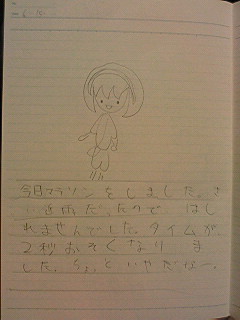 今日マラソンをしました。さ
い近雨だったので はし
れませんでした。タイムが
2秒おそくなり ま
した。ちょっといやだなー。